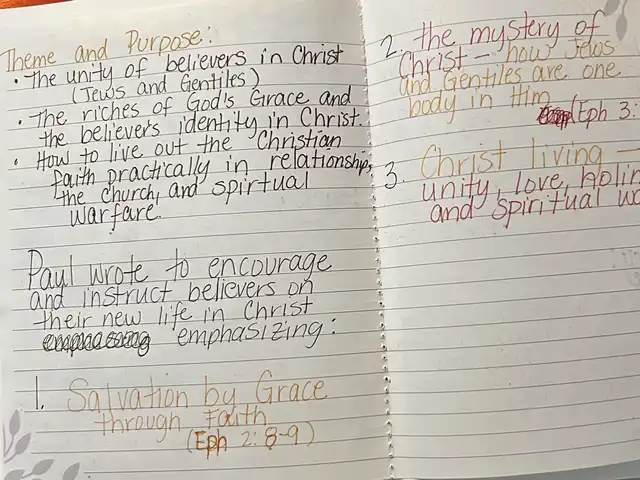 Theme and Purpose:
• The unity of believers in Christ
(Jews and Gentiles)
• The riches of God's Grace and
the believers identity in Christ.
• How to live out the Christian
faith practically in relationship,
the church, and spirtual
warfare.
Paul wrote to encourage
and instruct believers on
their new life in Christ
emphasizing:
1. Salvation by Grace
through faith
(Eph 2:8-9)
2. the mystery of
Christ - how Jews
and Gentiles are one
body in Him
(Eph 3:
3. Christ living -
unity, love,
and spiritual